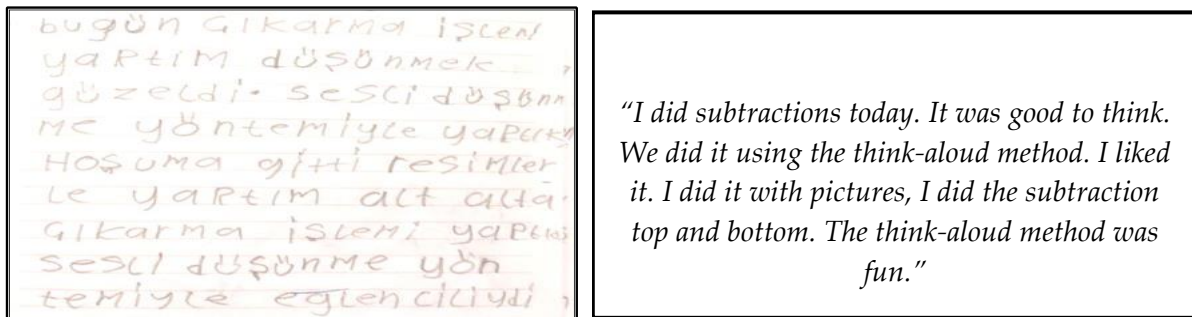 bugün Gıkarma işlem
yaptim düşünmek ,
güzeldi. sesli düşünm
me yöntemiyle yaptım
Hoşuma gitti resimler
le yaptım alt alta.
Gıkarma islemi yaptım
sesli düşünme yön
temiyle eğlenciliydi ,
“I did subtractions today. It was good to think.
We did it using the think-aloud method. I liked
it. I did it with pictures, I did the subtraction
top and bottom. The think-aloud method was
fun.”